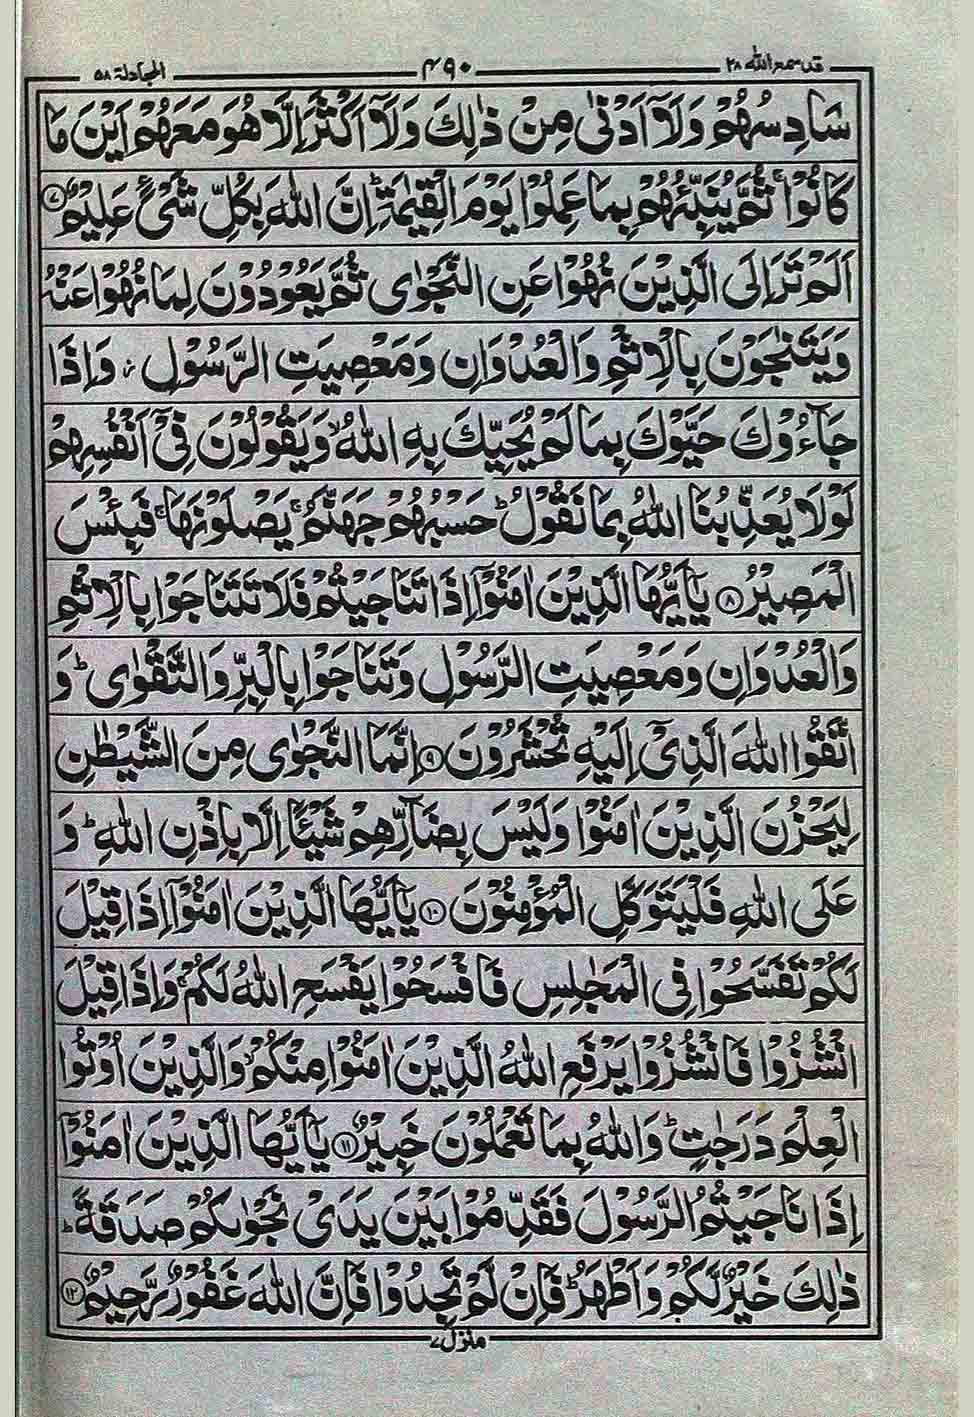 قد سمع الله ٢٨
٤٩٠
المجادلة ٥٨
سَادِسُهُمْ وَلَآ اَدْنٰى مِنْ ذٰلِكَ وَلَآ اَكْثَرَ اِلَّا هُوَ مَعَهُمْ اَيْنَ مَا
كَانُوْا ۚ ثُمَّ يُنَبِّئُهُمْ بِمَا عَمِلُوْا يَوْمَ الْقِيٰمَةِ ؕ اِنَّ اللّٰهَ بِكُلِّ شَىْءٍ عَلِيْمٌ ۝٧
اَلَمْ تَرَ اِلَى الَّذِيْنَ نُهُوْا عَنِ النَّجْوٰى ثُمَّ يَعُوْدُوْنَ لِمَا نُهُوْا عَنْهُ
وَيَتَنٰجَوْنَ بِالْاِثْمِ وَالْعُدْوَانِ وَمَعْصِيَتِ الرَّسُوْلِ ؗ وَاِذَا
جَآءُوْكَ حَيَّوْكَ بِمَا لَمْ يُحَيِّكَ بِهِ اللّٰهُ ۙ وَيَقُوْلُوْنَ فِىْٓ اَنْفُسِهِمْ
لَوْلَا يُعَذِّبُنَا اللّٰهُ بِمَا نَقُوْلُ ؕ حَسْبُهُمْ جَهَنَّمُ ۚ يَصْلَوْنَهَا ۚ فَبِئْسَ
الْمَصِيْرُ ۝٨ يٰٓاَيُّهَا الَّذِيْنَ اٰمَنُوْٓا اِذَا تَنَاجَيْتُمْ فَلَا تَتَنَاجَوْا بِالْاِثْمِ
وَالْعُدْوَانِ وَمَعْصِيَتِ الرَّسُوْلِ وَتَنَاجَوْا بِالْبِرِّ وَالتَّقْوٰى ؕ وَ
اتَّقُوا اللّٰهَ الَّذِىْٓ اِلَيْهِ تُحْشَرُوْنَ ۝٩ اِنَّمَا النَّجْوٰى مِنَ الشَّيْطٰنِ
لِيَحْزُنَ الَّذِيْنَ اٰمَنُوْا وَلَيْسَ بِضَآرِّهِمْ شَيْئًا اِلَّا بِاِذْنِ اللّٰهِ ؕ وَ
عَلَى اللّٰهِ فَلْيَتَوَكَّلِ الْمُؤْمِنُوْنَ ۝١٠ يٰٓاَيُّهَا الَّذِيْنَ اٰمَنُوْٓا اِذَا قِيْلَ
لَكُمْ تَفَسَّحُوْا فِى الْمَجٰلِسِ فَافْسَحُوْا يَفْسَحِ اللّٰهُ لَكُمْ ۚ وَاِذَا قِيْلَ
انْشُزُوْا فَانْشُزُوْا يَرْفَعِ اللّٰهُ الَّذِيْنَ اٰمَنُوْا مِنْكُمْ ۙ وَالَّذِيْنَ اُوْتُوا
الْعِلْمَ دَرَجٰتٍ ؕ وَاللّٰهُ بِمَا تَعْمَلُوْنَ خَبِيْرٌ ۝١١ يٰٓاَيُّهَا الَّذِيْنَ اٰمَنُوْٓا
اِذَا نَاجَيْتُمُ الرَّسُوْلَ فَقَدِّمُوْا بَيْنَ يَدَىْ نَجْوٰىكُمْ صَدَقَةً ؕ
ذٰلِكَ خَيْرٌ لَّكُمْ وَاَطْهَرُ ؕ فَاِنْ لَّمْ تَجِدُوْا فَاِنَّ اللّٰهَ غَفُوْرٌ رَّحِيْمٌ ۝١٢
منزل ٧